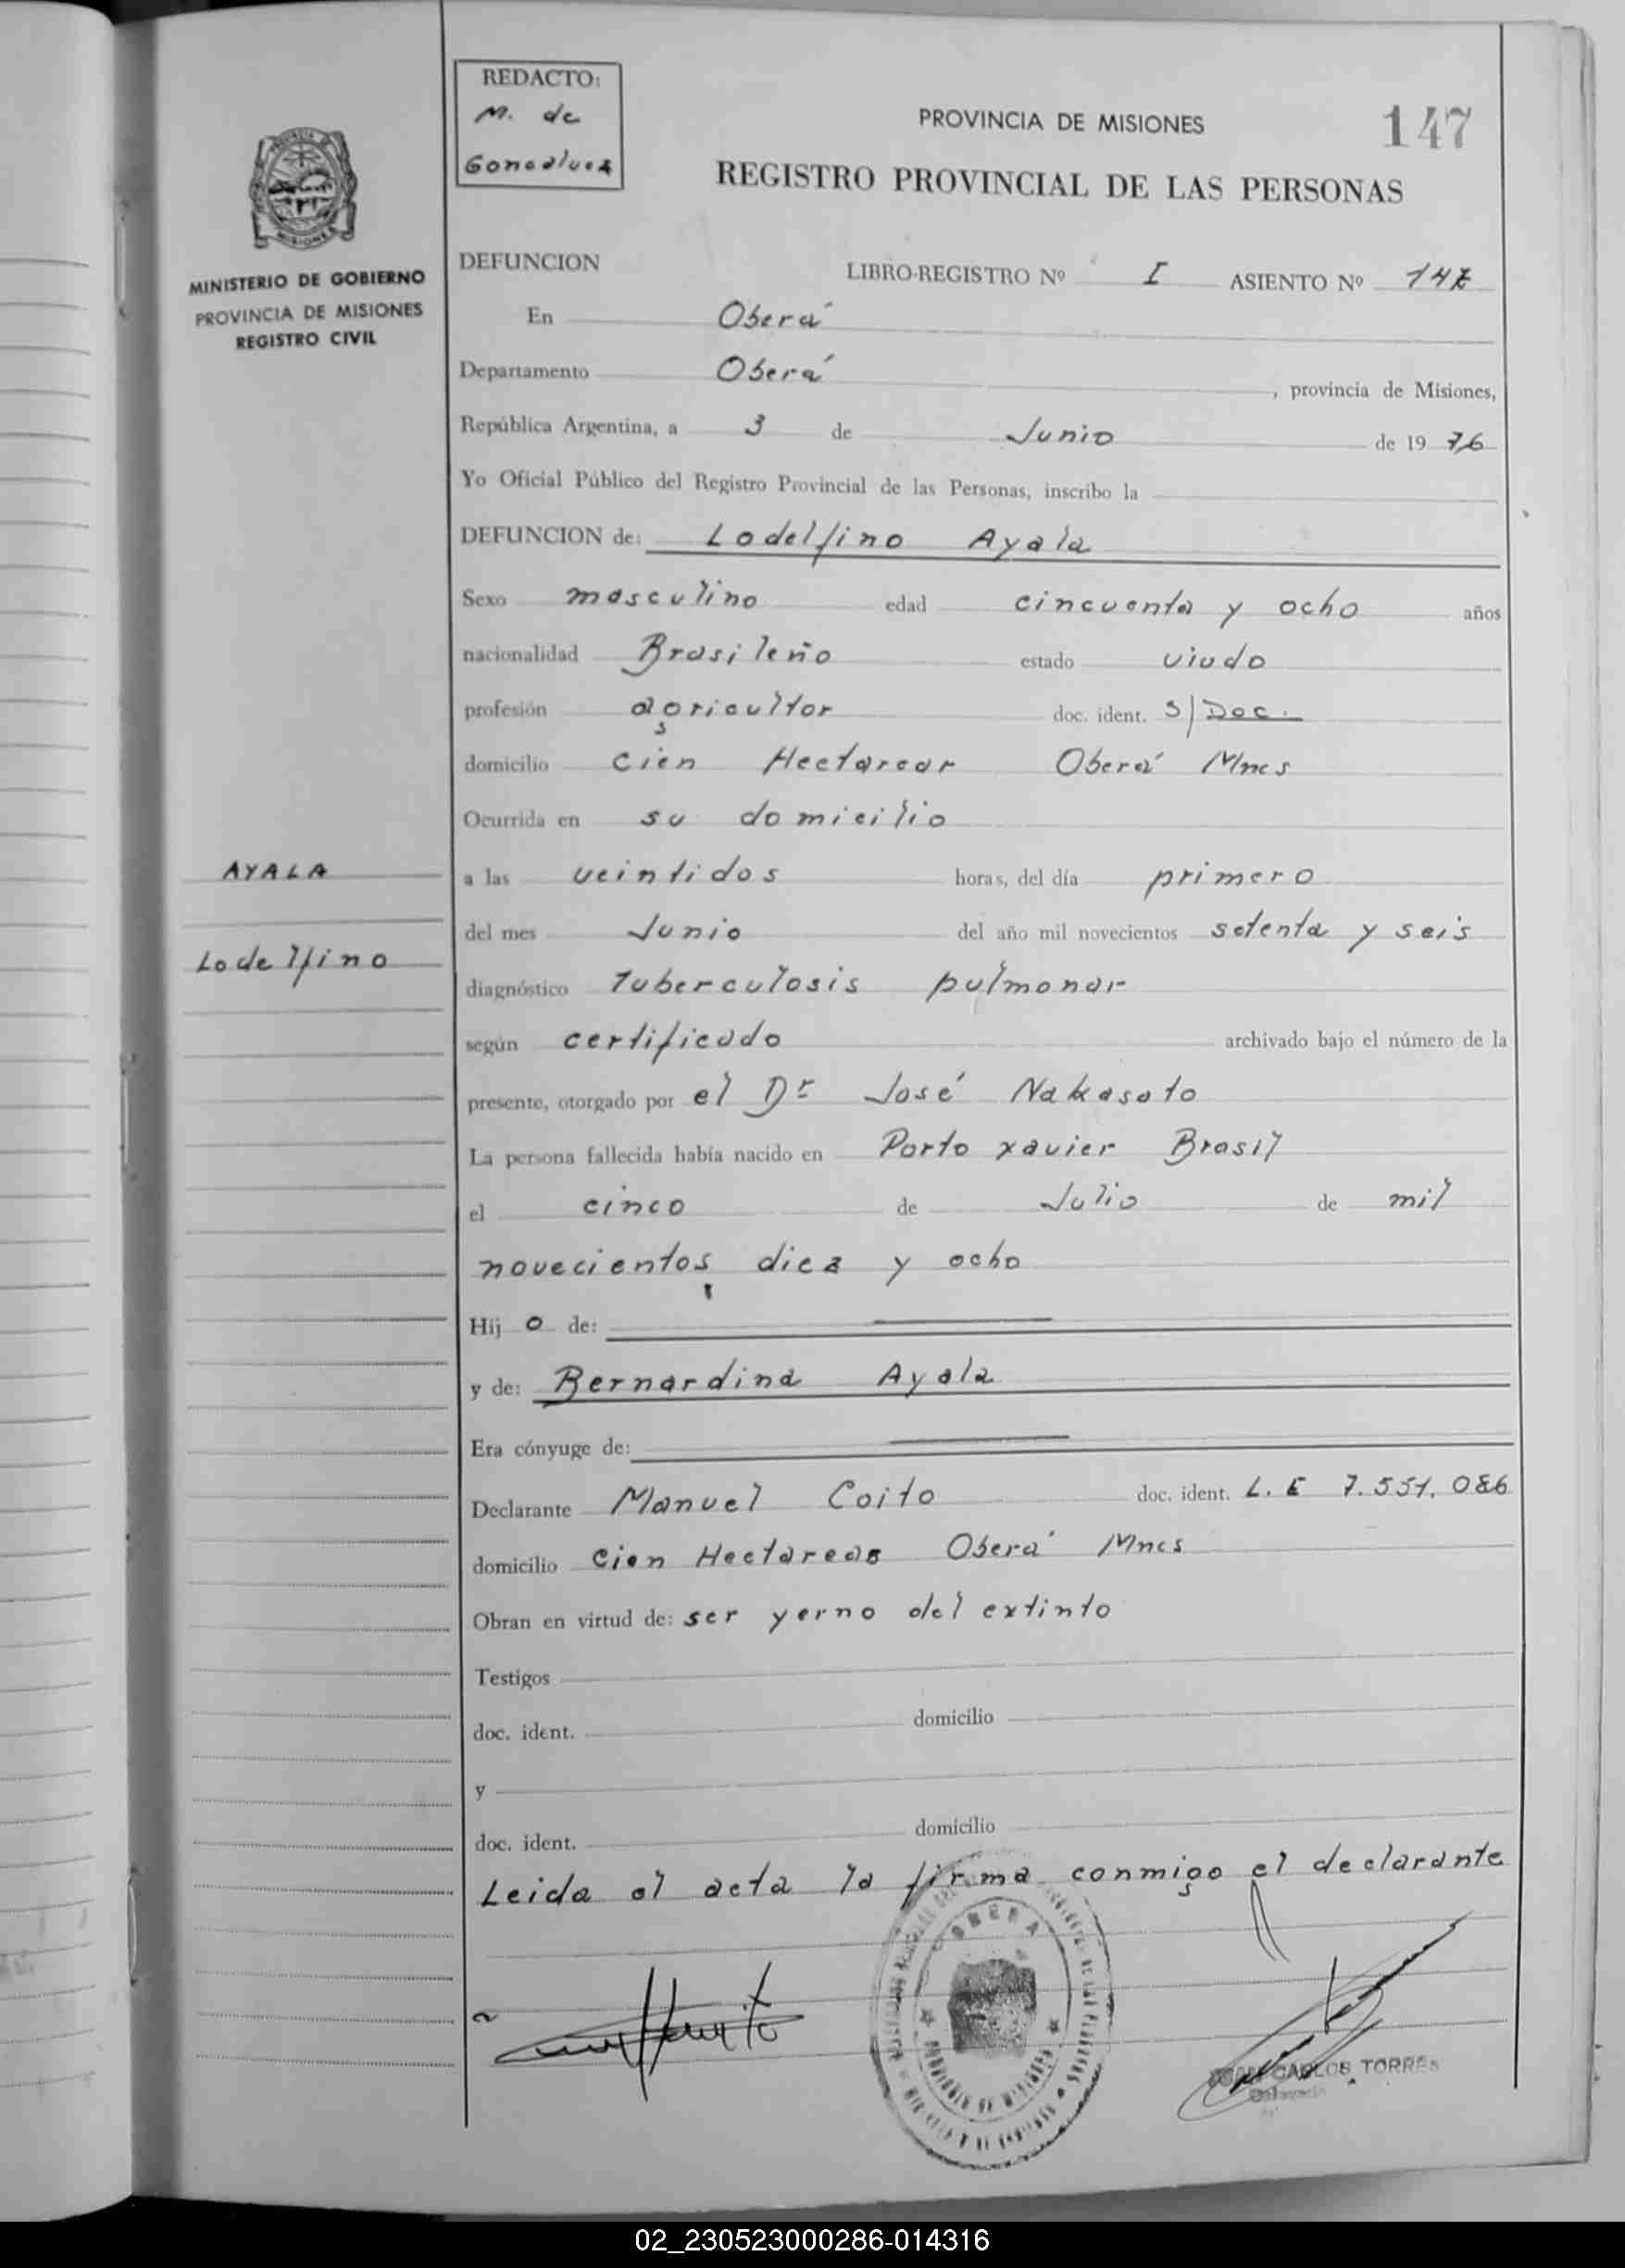 REDACTO:
M. de
Goncalvez
PROVINCIA DE MISIONES
147
REGISTRO PROVINCIAL DE LAS PERSONAS
MINISTERIO DE GOBIERNO
PROVINCIA DE MISIONES
REGISTRO CIVIL
DEFUNCION LIBRO-REGISTRO Nº I ASIENTO Nº 147
En Oberá
Departamento Oberá , provincia de Misiones,
República Argentina, a 3 de Junio de 19 76
Yo Oficial Público del Registro Provincial de las Personas, inscribo la
DEFUNCION de: Lodelfino Ayala
Sexo masculino edad cincuenta y ocho años
nacionalidad Brasileño estado viudo
profesión agricultor doc. ident. S/Doc.
domicilio Cien Hectareas Oberá Mnes
Ocurrida en su domicilio
AYALA
a las veintidos horas, del día primero
del mes Junio del año mil novecientos setenta y seis
Lodelfino
diagnóstico tuberculosis pulmonar
según certificado archivado bajo el número de la
presente, otorgado por el Dr José Nakasato
La persona fallecida había nacido en Porto xavier Brasil
el cinco de Julio de mil
novecientos diez y ocho
Hij o de:
y de: Bernardina Ayala
Era cónyuge de:
Declarante Manuel Coito doc. ident. L. E 7.551.086
domicilio Cien Hectareas Oberá Mnes
Obran en virtud de: ser yerno del extinto
Testigos
doc. ident. domicilio
y
doc. ident. domicilio
Leida el acta la firma conmigo el declarante
OBERA
PROVINCIA DE MISIONES
JUAN CARLOS TORRES
02_230523000286-014316